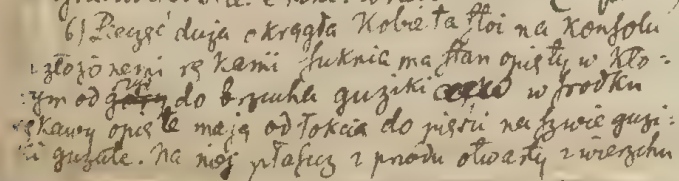 6) Pieczęć duża okrągła Kobieta stoi na Konsolu
złożonemi rękami suknia ma stan opięty w Któ:
ym od szyi do brzucha guziki w środku
ękawy opięte mają od łokcia do pięści na szwie guzi:
i gęste. Na niej płaszcz z przodu otwarty z wierzchu